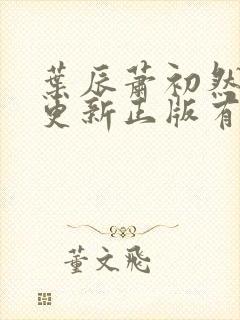 葉辰蕭初然
更新正版有
董文飛